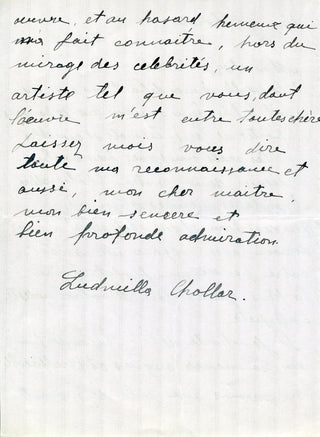 œuvre, et au hasard heureux qui
m'a fait connaitre, hors du
mirage des célébrités, un
artiste tel que vous, dont
l'œuvre m'est entre toutes chère
Laissez mois vous dire
toute ma reconnaissance et
aussi, mon cher maitre,
mon bien sencere et
bien profonde admiration
Ludmilla Chollar.